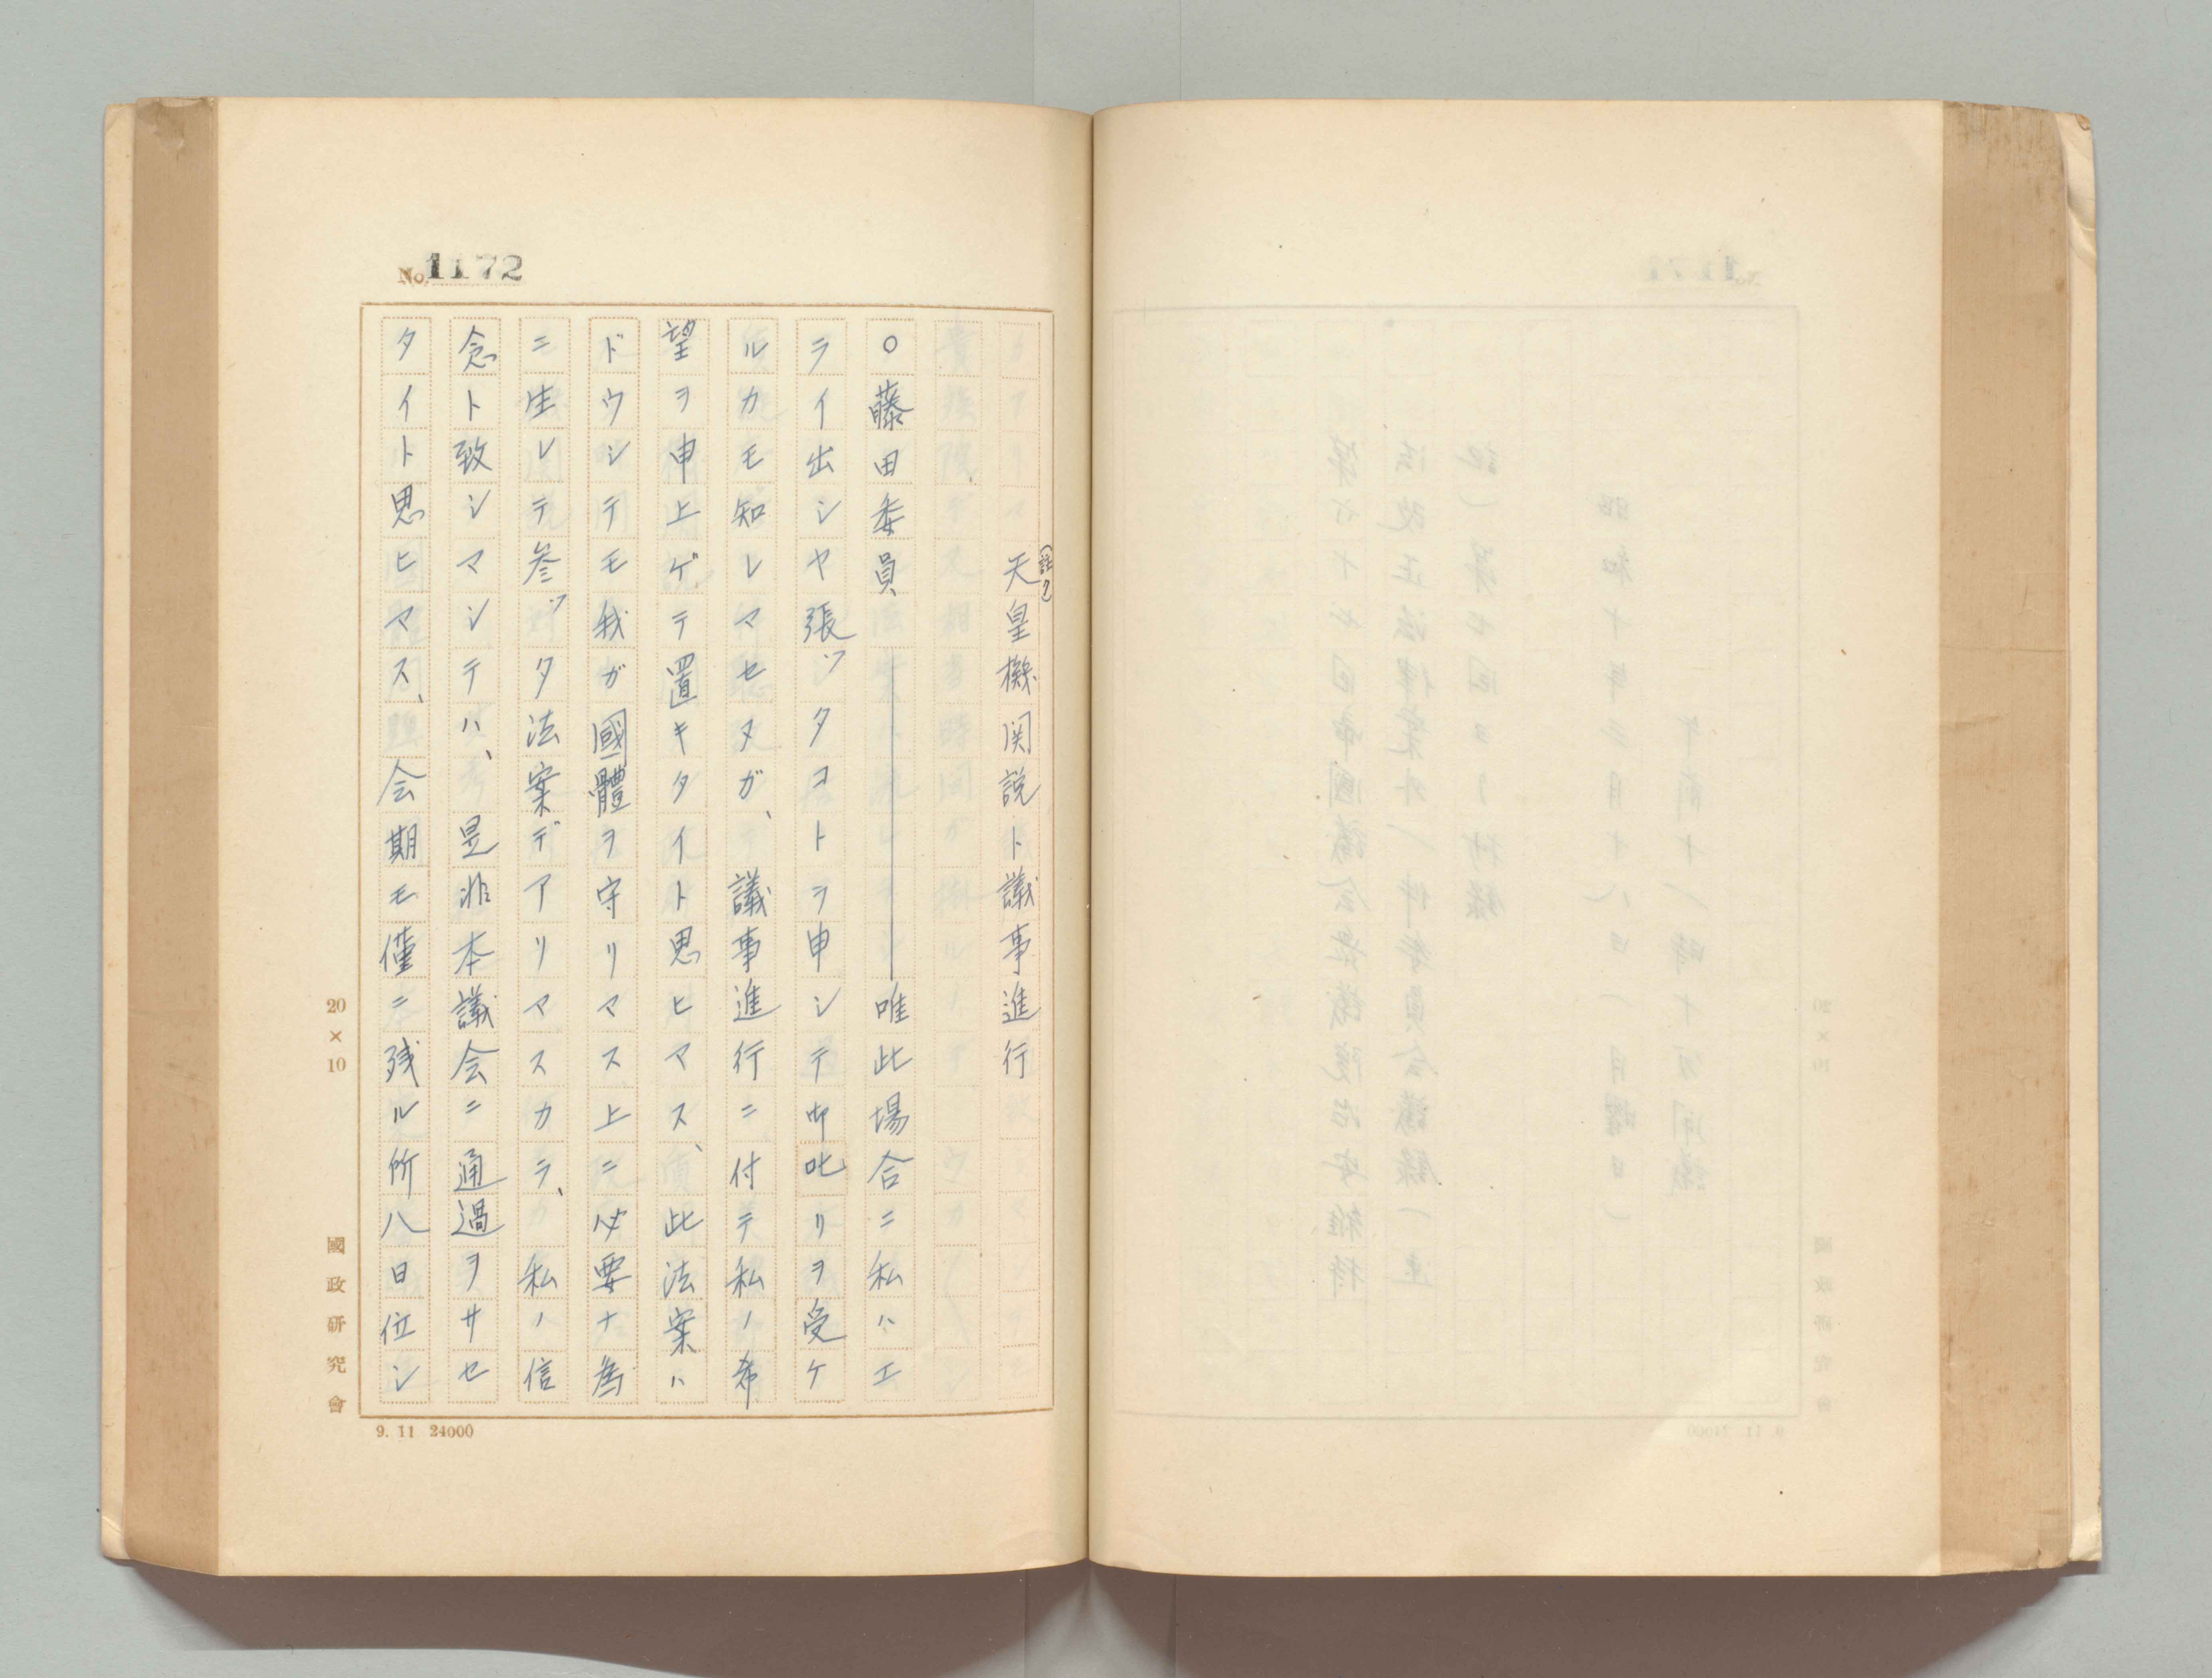 No. 1172
(註7)
天皇機関説ト議事進行
○藤田委員、――唯此場合ニ私ハエ
ライ出シヤ張ッタコトヲ申シテ御叱リヲ受ケ
ルカモ知レマセヌガ、議事進行ニ付テ私ノ希
望ヲ申上ゲテ置キタイト思ヒマス、此法案ハ
ドウシテモ我ガ國體ヲ守リマス上ニ必要ナ為
ニ生レテ参ッタ法案デアリマスカラ、私ノ信
念ト致シマシテハ、是非本議会ニ通過ヲサセ
タイト思ヒマス、会期モ僅ニ残ル所八日位シ
20×10
國政研究會
9. 11 24000